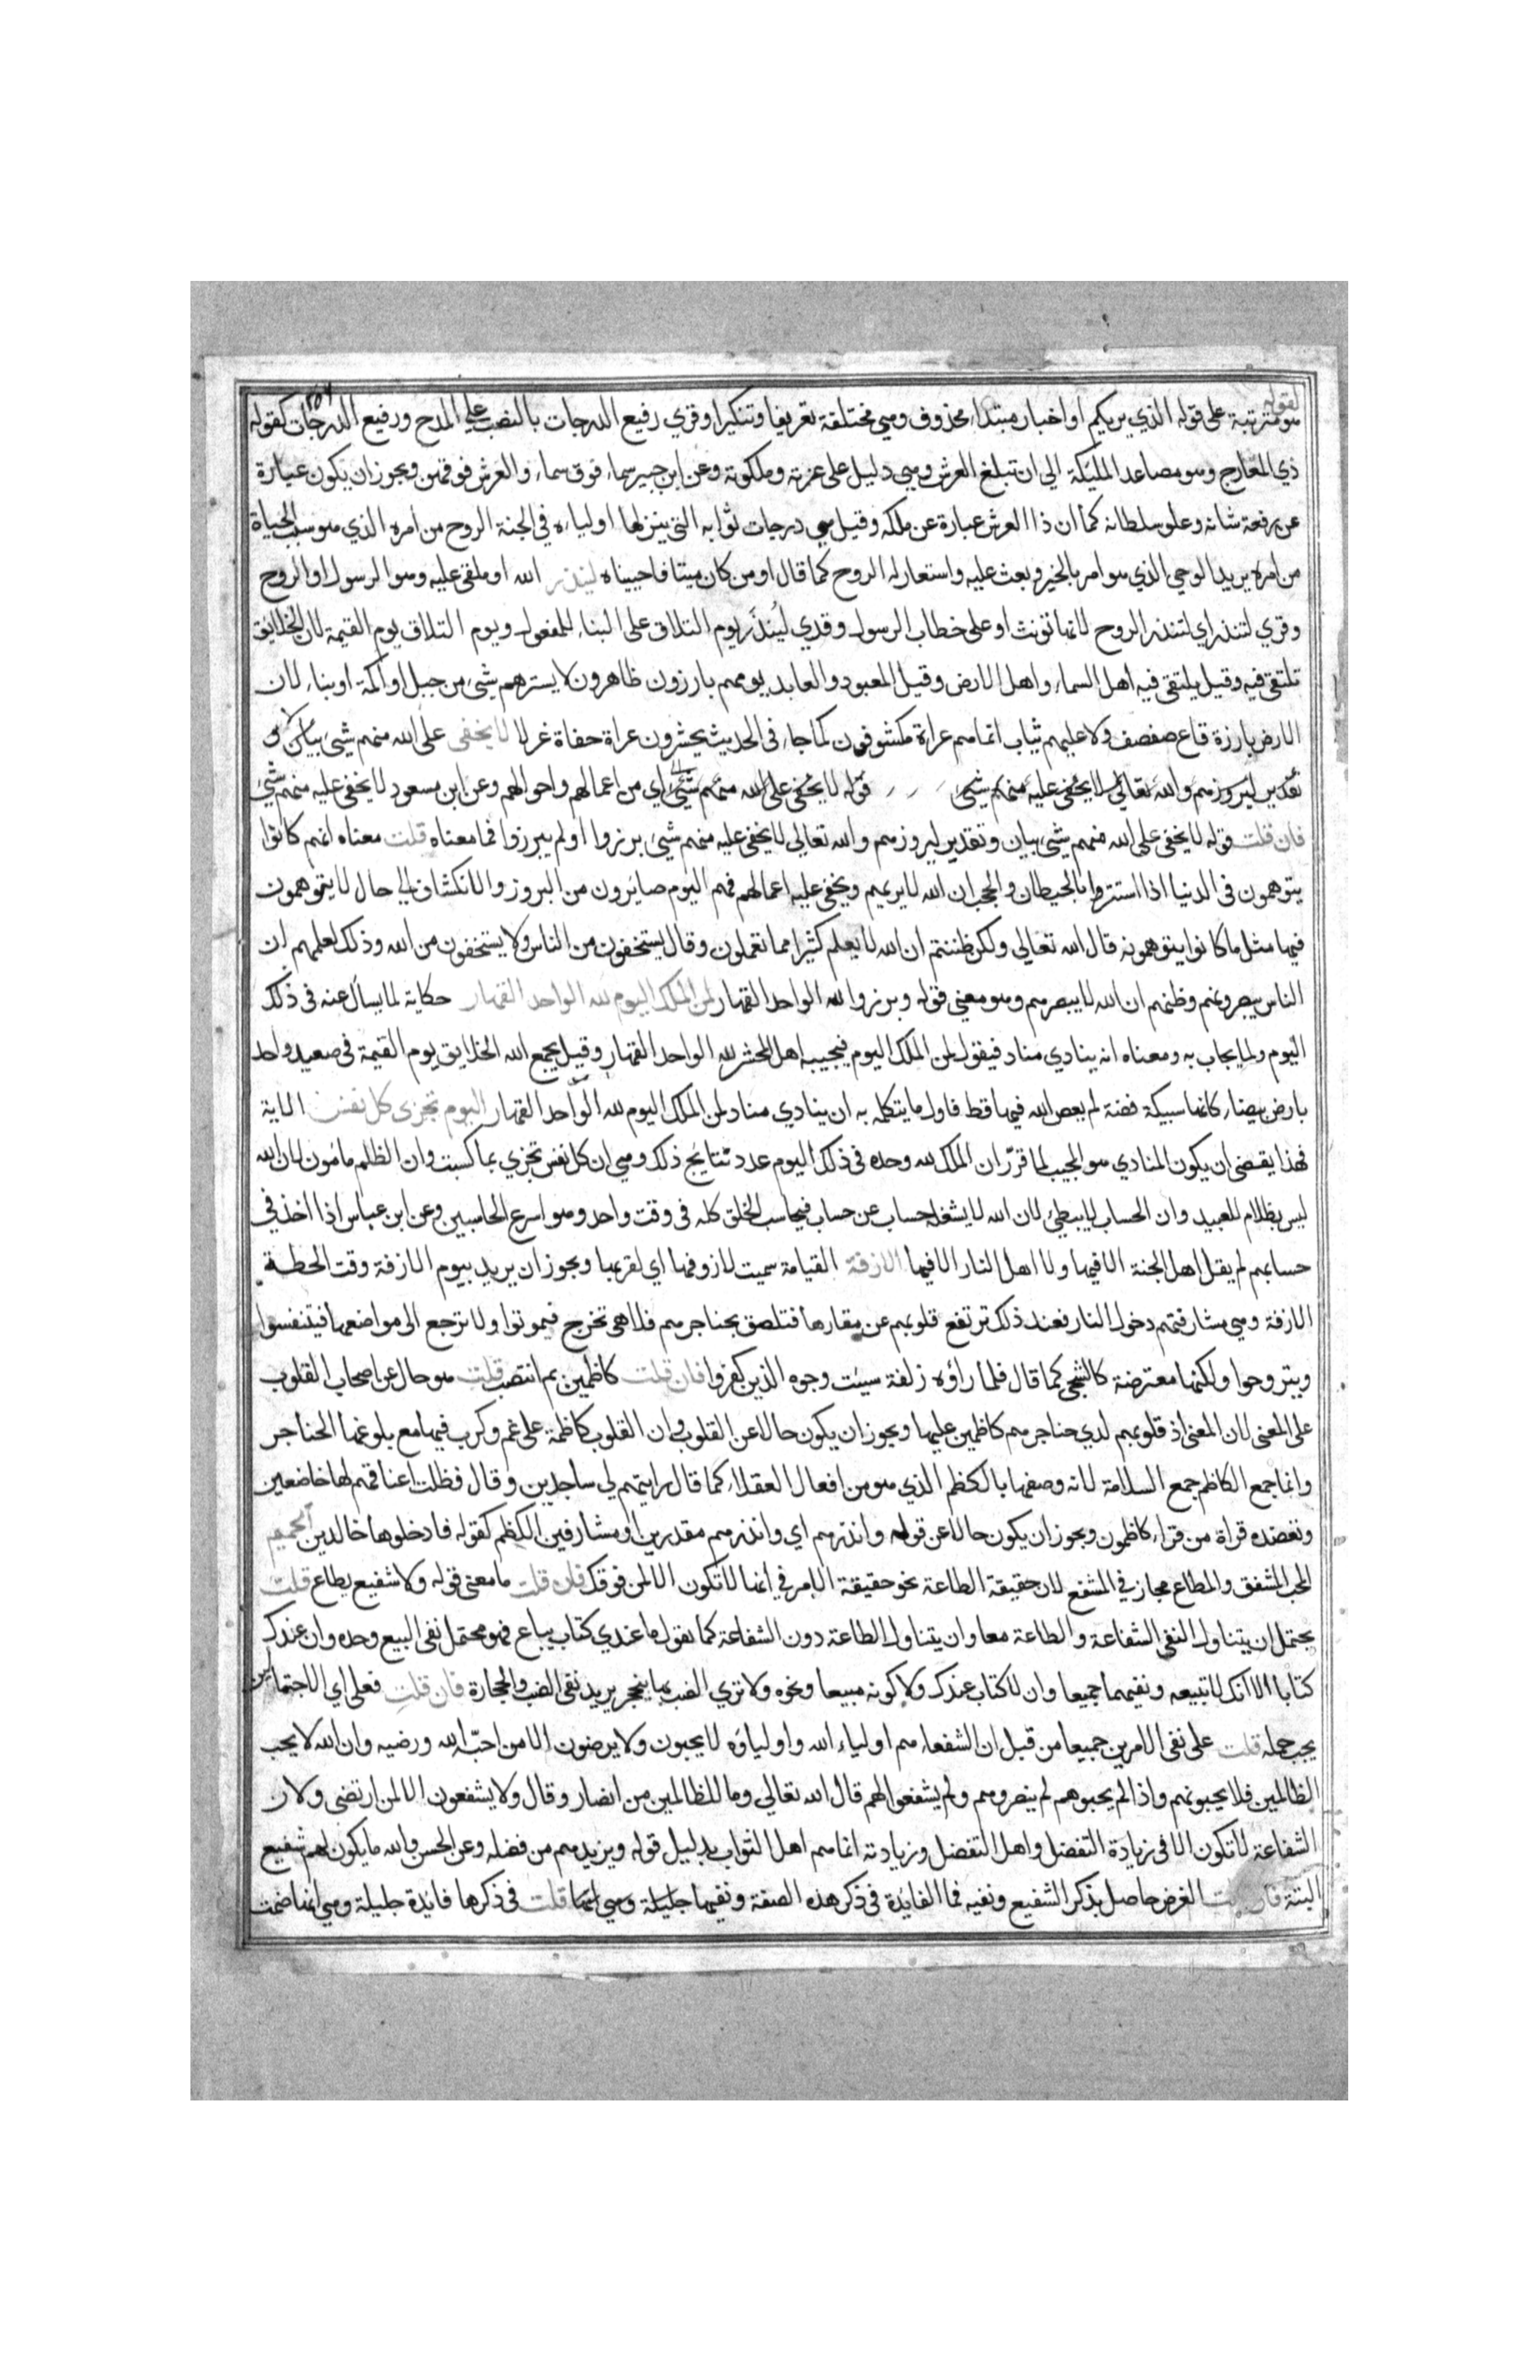 لقوله
هو مترتبة على قوله الذي يريكم او اخبار مبتداء محذوف وهي مختلفة تعريفا وتنكيرا وقري رفيع الدرجات بالنصب على المدح ورفيع الدرجات كقوله
ذي المعارج وهو مصاعد المليكة الي ان تبلغ العرش وهي دليل على عزته وملكوته وعن ابن جبير سماء فوق سماء والعرش فوقهن ويجوز ان يكون عبارة
عن رفعة شانه وعلو سلطانه كما ان ذا العرش عبارة عن ملكه وقيل هي درجات ثوابه التي ينزلها اولياءه في الجنة الروح من امره الذي هو سبب الحياة
من امره يريد الوحي الذي هو امر بالخير وبعث عليه واستعار له الروح كما قال اومن كان ميتا فاحييناه لينذر الله او ملقى عليه وهو الرسول او الروح
وقري لتنذر اي لتنذر الروح لانها تونث او على خطاب الرسول وقدي لينذر يوم التلاق على البناء للمفعول ويوم التلاق يوم القيمة لان الخلايق
تلتقي فيه وقيل يلتقي فيه اهل السماء واهل الارض وقيل المعبود والعابد يوم هم بارزون ظاهرون لا يسترهم شيء من جبل او اكمة او بناء لان
الارض بارزة قاع صفصف ولا عليهم ثياب انما هم عراة مكشوفون كما جاء في الحديث يحشرون عراة حفاة غرلا لا يخفى على الله منهم شيء بيان و
تقدير لبروزهم والله تعالي لا يخفى عليه منهم شيء قوله لا يخفى على الله منهم شيء اي من اعمالهم واحوالهم وعن ابن مسعود لا يخفى عليه منهم شي
فان قلت قوله لا يخفى على الله منهم شيء بيان وتقدير لبروزهم والله تعالي لا يخفى عليه منهم شيء برزوا اولم يبرزوا فما معناه قلت معناه انهم كانوا
يتوهمون في الدنيا اذا استتروا بالحيطان والحجب ان الله لا يريهم ويخفى عليه اعمالهم فهم اليوم صايرون من البروز والانكشاف الي حال لا يتوهمون
فيها مثل ما كانوا يتوهمونه قال الله تعالي ولكن ظننتم ان الله لا يعلم كثيرا مما تعملون وقال يستخفون من الناس ولا يستخفون من الله وذلك لعلمهم ان
الناس يبصرونهم وظنهم ان الله لا يبصرهم وهو معنى قوله وبرزوا لله الواحد القهار لمن الملك اليوم لله الواحد القهار حكاية لما يسأل عنه في ذلك
اليوم ولما يجاب به ومعناه انه ينادي مناد فيقول لمن الملك اليوم فيجيبه اهل المحشر لله الواحد القهار وقيل يجمع الله الخلايق يوم القيمة في صعيد واحد
بارض بيضاء كانها سبيكة فضة لم يعص الله فيها قط فاول ما يتكلم به ان ينادي مناد لمن الملك اليوم لله الواحد القهار اليوم تجزى كل نفس الاية
فهذا يقتضي ان يكون المنادي هو المجيب لما قرر ان الملك لله وحده في ذلك اليوم عدد نتايج ذلك وهي ان كل نفس تجزي بما كسبت وان الظلم مامون لان الله
ليس بظلام للعبيد وان الحساب لا يبطي لان الله لا يشغله حساب عن حساب فيحاسب الخلق كله في وقت واحد وهو اسرع الحاسبين وعن ابن عباس اذا اخذ في
حسابهم لم يقل اهل الجنة الا فيها ولا اهل النار الا فيها الازفة القيامة سميت لازوفها اي لقربها ويجوز ان يريد بيوم الازفة وقت الخطة
الازفة وهي مشارفتهم دخول النار فعند ذلك ترتفع قلوبهم عن مقارها فتلصق بحناجرهم فلا هي تخرج فيموتوا ولا ترجع الى مواضعها فيتنفسوا
ويتروحوا ولكنها معترضة كالشجى كما قال فلما رأوه زلفة سيئت وجوه الذين كفروا فان قلت كاظمين بم انتصب قلت هو حال عن اصحاب القلوب
على المعنى لان المعنى اذ قلوبهم لدي حناجرهم كاظمين عليها ويجوز ان يكون حالا عن القلوب وان القلوب كاظمة على غم وكرب فيها مع بلوغها الحناجر
وانما جمع الكاظم جمع السلامة لانه وصفها بالكظم الذي هو من افعال العقلاء كما قال رايتهم لي ساجدين وقال فظلت اعناقهم لها خاضعين
وتعضده قراة من قراء كاظمون ويجوز ان يكون حالا عن قوله وانذرهم اي وانذرهم مقدرين او مشارفين الكظم كقوله فادخلوها خالدين الحميم
المحب المشفق والمطاع مجاز في المشفع لان حقيقة الطاعة نحو حقيقة الامر في انها لا تكون الا لمن فوقك فان قلت ما معنى قوله ولا شفيع يطاع قلت
يحتمل ان يتناول النفي الشفاعة والطاعة معا وان يتناول الطاعة دون الشفاعة كما تقول ما عندي كتاب يباع فهو محتمل نفي البيع وحده وان عندك
كتابا الا انك لا تبيعه ونفيهما جميعا وان لا كتاب عندك ولا كونه مبيعا ونحوه ولا تري الضب بها ينجحر يريد نفي الضب والحجارة فان قلت فعلي اي الاحتمالين
يجب حمله قلت على نفي الامرين جميعا من قبل ان الشفعاء هم اولياء الله واولياؤه لا يحبون ولا يرضون الا من احب الله ورضيه وان الله لا يحب
الظالمين فلا يحبونهم واذا لم يحبوهم لم ينصروهم ولم يشفعوا لهم قال الله تعالي وما للظالمين من انصار وقال ولا يشفعون الا لمن ارتضى ولان
الشفاعة لا تكون الا في زيادة التفضل واهل التفضل وزيادته انما هم اهل الثواب بدليل قوله ويزيدهم من فضله وعن الحسن والله ما يكون لهم شفيع
البتة فان قلت الغرض حاصل بذكر الشفيع ونفيه فما الفايدة في ذكر هذه الصفة ونفيها جليلة وهي انها قلت في ذكرها فايدة جليلة وهي انها ضمت